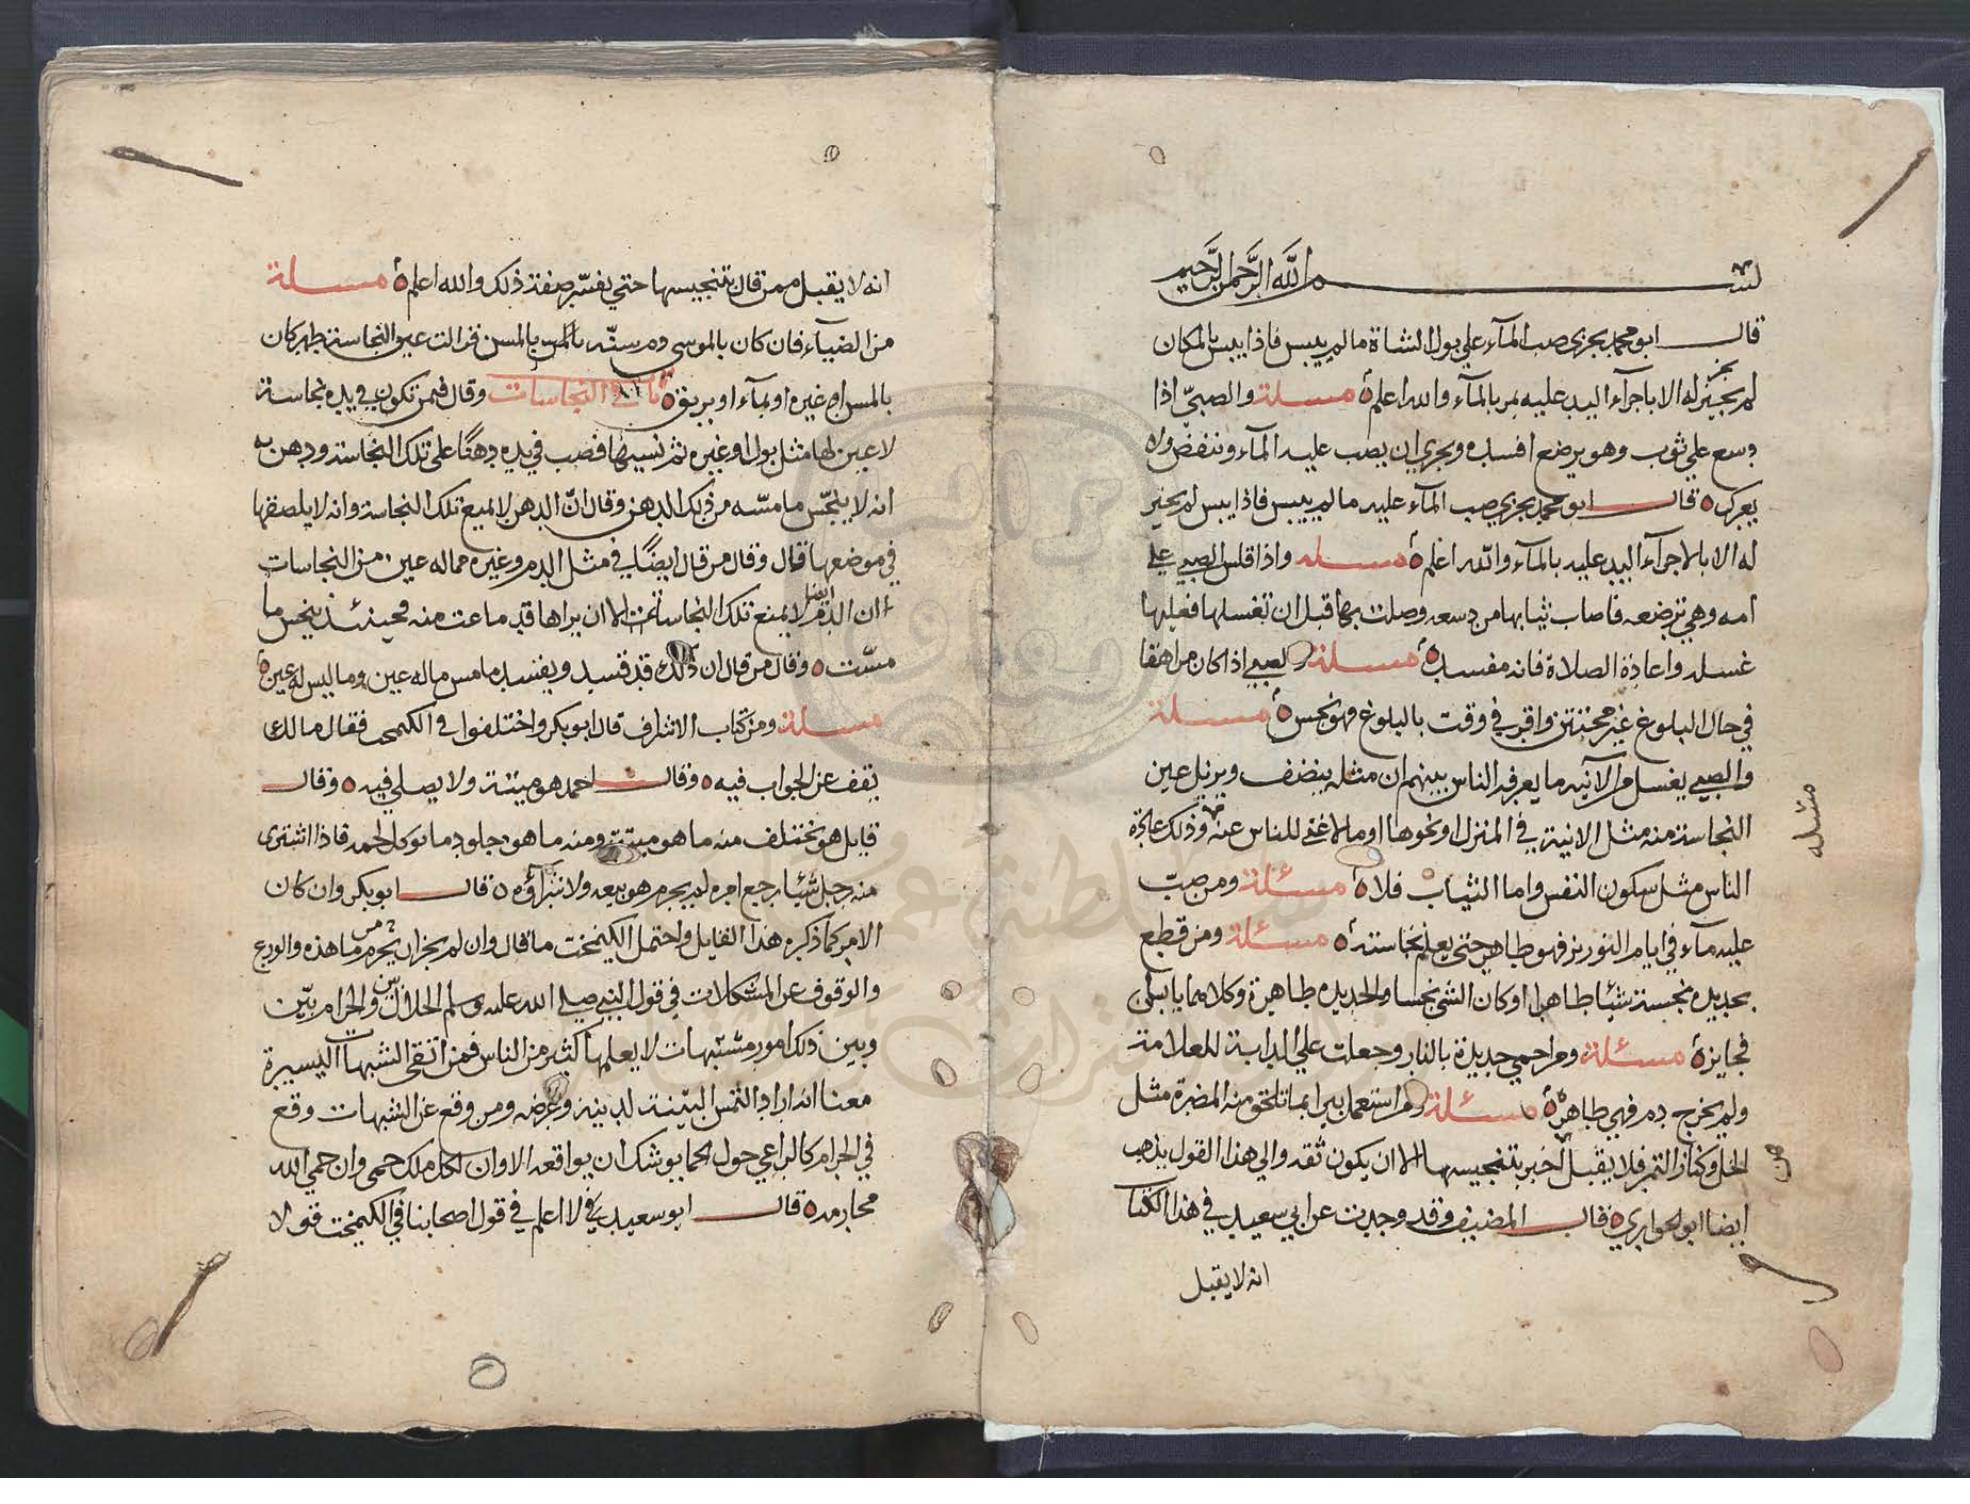 بسم الله الرحمن الرحيم
قال ابو محمد يجزي صب المآء علي بول الشاة ما لم ييبس فاذا يبس بالمكان
لم يجيز له الا باجرآء اليد عليه مر بالمآء والله اعلم ه مسئلة والصبيّ اذا
دسع علي ثوب وهو يرضع افسده ويجزي ان يصب عليه المآء وينفض ولا
يعرك ه قال ابو محمد يجزي صب المآء عليه ما لم ييبس فاذا يبس لم يجيز
له الا بالاجرآء اليد عليه بالمآء والله اعلم ه مسئله واذا قلس الصبي علي
امه وهي ترضعه فاصاب ثيابها من دسعه وصلت بها قبل ان تغسلها فعليها
غسله واعادة الصلاة فانه مفسد ه مسئلة والصبي اذا كان مراهقا
في حال البلوغ غير مختتن واقر في وقت بالبلوغ فهو نجس ه مسئلة
والصبي يغسل من الآنيه ما يعرفه الناس بينهم ان مثله ينضف ويزيل عين
النجاسة منه مثل الانية في المنزل او نحوها او مالا غني للناس عنه وذلك عادة
الناس مثل سكون النفس واما الثياب فلا ه مسئلة ومن صبّ
عليه مآء في ايام النوريز فهو طاهر حتي يعلم نجاسته ه مسئلة ومن قطع
بحديده نجسة شيئا طاهرا او كان الشي نجسا والحديده طاهرة وكلاهما يابس
فجايزه مسئلة ومن احمي حديدة بالنار وجعلت علي الدابة للعلامة
ولم يخرج دم فهي طاهرة ه مسئلة ومن استعمل بيرا بما تلحق منه المضرة مثل
الخل وكناز التمر فلا يقبل اخبر بتنجيسها الا ان يكون ثقه والي هذا القول يذهب
ايضا ابو الحواري ه قال المضيف وقد وجدت عن ابي سعيد في هذا الكتاب
انه لا يقبل
مسئله
انه لا يقبل ممن قال بتنجيسها حتي يفسّر صفة ذلك والله اعلم ه مسئلة
من الضيآء فان كان بالموسي دم سنّه بالمسن فزالت عين النجاسة طهر كان
بالمسن او غيره او بمآء او بريق ه باب في النجاسات وقال فيمن تكون في يده نجاسة
لا عين لها مثل بول او غيره ثم نسيها فصب في يده دهنًا علي تلك النجاسة ودهن به
انه لا ينجّس ما مسّه من ذلك الدهن وقال انّ الدهن لا يميع تلك النجاسة وانه لا يلصقها
في موضعها قال وقال من قال ايضًا في مثل الدم وغيره مما له عين من النجاسات
ان الدهن ايضا لا يمنع تلك النجاسة الا ان يراها قد ماعت منه فحينئذ ينجس ما
مسّت ه وقال من قال ان ذلك قد فسد ويفسد ما مس ماله عين وما ليس له عين ه
مسئلة ومن كتاب الاشراف قال ابو بكر واختلفوا في الكيمخت فقال مالك
يقف عن الجواب فيه ه وقال احمد هو ميتة ولا يصلي فيه ه وقال
قايل هو يختلف منه ما هو ميتة ومنه ما هو جلود ما توكل لحمه فاذا اشترى
منه رجل شيئا رجع امره لم يحرم هو بيعه ولا شرآؤه ه قال ابو بكر وان كان
الامر كما ذكره هذا القايل واحتمل الكيمخت ما قال وان لم يجز ان يحرم من ما هذه والورع
والوقوف عن المشكلات في قول النبي صلي الله عليه وسلم الحلال بيّن والحرام بيّن
وبين ذلك امور مشتبهات لا يعلمها كثير من الناس فمن اتقى الشبهات اليسيرة
معنا انه اراد التمس البيّنة لدينه وعرضه ومن وقع عن الشبهات وقع
في الحرام كالراعي حول الحما يوشك ان يواقعه الا وان لكل ملك حمى وان حمي الله
محارمه ه قال ابو سعيد لا اعلم في قول اصحابنا في الكيمخت قولا